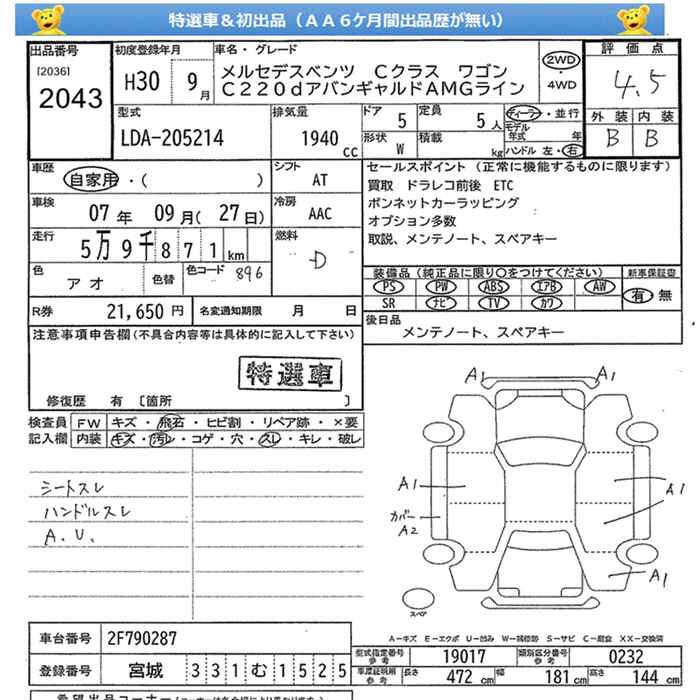 特選車＆初出品（ＡＡ６ケ月間出品歴が無い）
出品番号
[2036]
2043
初度登録年月
H30 9月
車名・グレード
メルセデスベンツ Ｃクラス ワゴン
Ｃ２２０ｄアバンギャルドＡＭＧライン
2WD
・
4WD
評価点
4.5
外装 内装
B B
型式
LDA-205214
排気量
1940 cc
ドア 5
定員 5人
形状 W
積載 kg
ディーラー・並行
モデル年式 年
ハンドル 左・右
車歴
自家用・( )
シフト
AT
車検
07年 09月(27日)
冷房
AAC
走行
5万9千871km
燃料
D
色
アオ
色替
色コード 896
セールスポイント（正常に機能するものに限ります）
買取 ドラレコ前後 ETC
ボンネットカーラッピング
オプション多数
取説、メンテノート、スペアキー
装備品（純正品に限り○をつけてください）
新車保証書
PS PW ABS エアB AW
SR ナビ TV カワ
有・無
R券 21,650円
名変通知期限 月 日
後日品
メンテノート、スペアキー
注意事項申告欄(不具合内容等は具体的に記入して下さい)
特選車
修復歴 有 〔箇所 〕
検査員記入欄
FW キズ・飛石・ヒビ割・リペア跡・×要
内装 キズ・汚レ・コゲ・穴・スレ・キレ・破レ
シートスレ
ハンドルスレ
A.U.
A1 A1
A1 A1
カバー
A2
A1
A1
スペア
A－キズ E－エクボ U－凹み W－補修跡 S－サビ C－腐食 XX－交換済
車台番号 2F790287
登録番号 宮城 331む1525
型式指定番号参考 19017
類別区分番号参考 0232
車庫証明用参考 長さ 472cm 幅 181cm 高さ 144cm